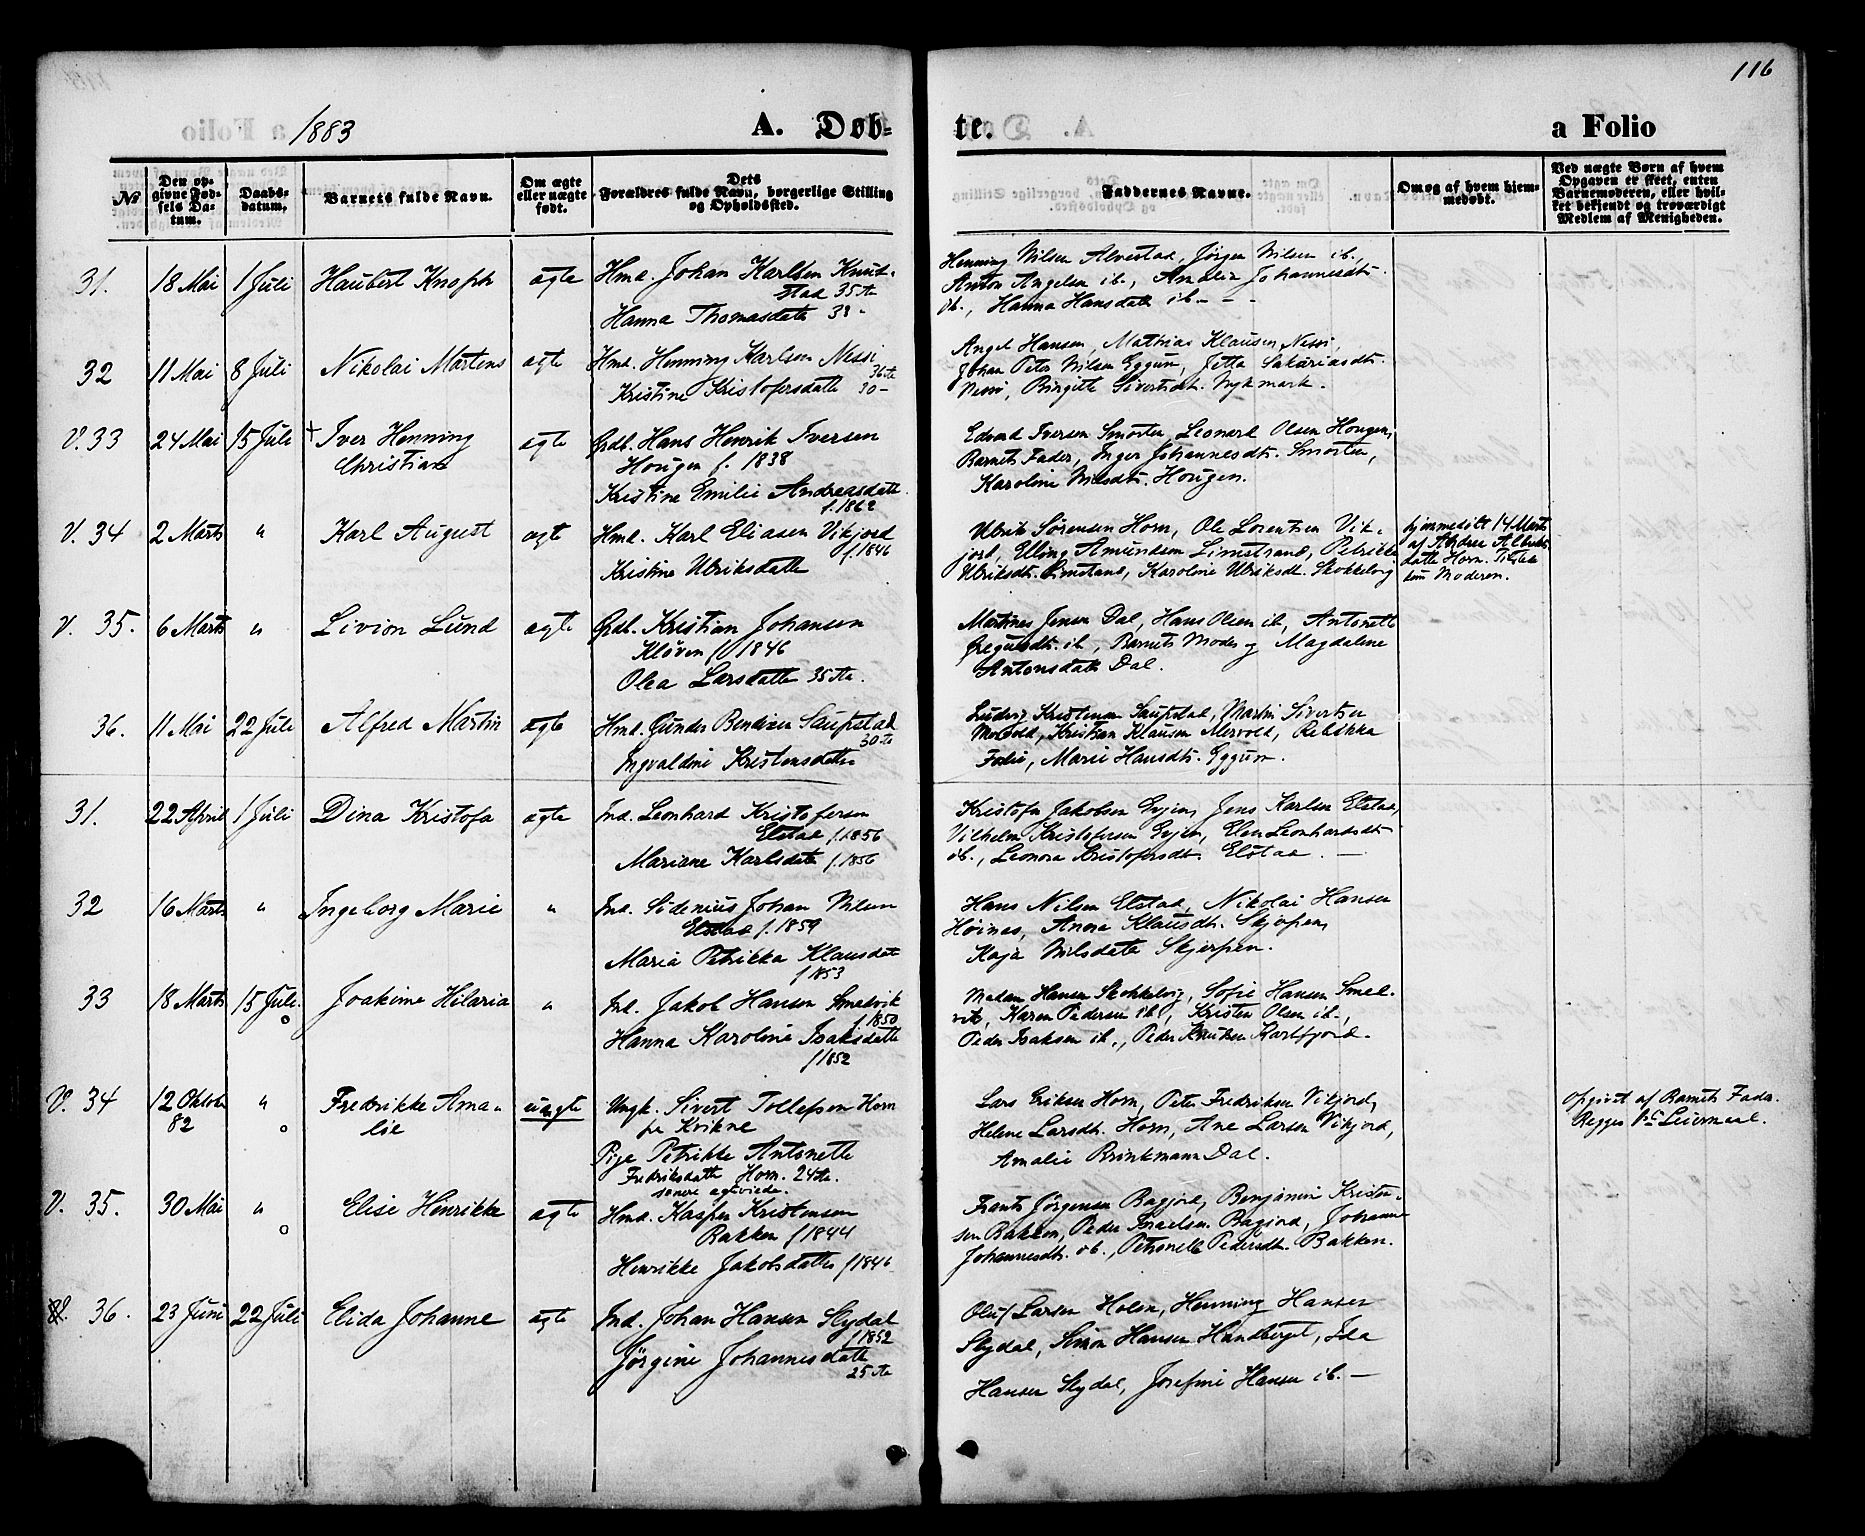 116
a Folio
1883
A. Døb-
te.
a Folio
№
Den op-
givne Fød-
sels Da-
tum.
Daabs-
datum.
Barnets fulde Navn.
Om ægte
eller uægte
født.
Dets
Forældres fulde Navn, borgerlige Stilling
og Opholdssted.
Faddernes Navne.
Om og af hvem hjem-
medøbt.
Ved uægte Børn af hvem
Opgaven er skeet, enten
Barnemoderen, eller hvil-
ket bekjendt og troværdigt
Medlem af Menigheden.
31. 18 Mai 1 Juli Haubert Knoph ægte Hmd. Johan Karlsen Knut-
stad 35 Aar
Hanna Thomasdatte 33 -
Henning Nilsen Alvestad, Jörgen Nilsen ib.,
Anton Angelsen ib., Amalia Johannesdt.
ib., Hanna Hansdatte ib. - -
32 11 Mai 8 Juli Nikolai Martens ægte Hmd. Henning Karlsen Nessi
36 Aar
Kristine Kristofersdatte 30 -
Angel Hansen, Mathias Klausen Nessi,
Johan Peter Nilsen Eggum, Jetta Sakariasdt.
Nessi, Birgitte Sivertsdt. Nykmark.
V. 33 24 Mai 15 Juli + Iver Henning
Christian
ægte Grdb. Hans Henrik Iversen
Hougen f. 1838
Kristine Emilie Andreasdatte
f. 1862
Edvard Iversen Smorten, Leonard Olsen Hougen,
Barnets Fader, Inger Johannesdt. Smorten,
Karoline Nilsdt. Hougen.
V. 34 2 Marts " Karl August ægt Hmd. Karl Eliasen Vikjord
f. 1846
Kristine Ulriksdatte
Ulrik Sörensen Horn, Ole Lorentsen Vik-
jord, Elling Amundsen Limstrand, Petrikke
Ulriksdt. Limstand, Karoline Ulriksdt. Skokkelvig
hjemmedöbt 14 Marts
af Andrea Albrikts
datte Horn.
Moderen.
V. 35. 6 Marts " Livion Lund ægte Grdb. Kristian Johansen
Klöven f. 1846
Olea Larsdatte 35 Aar.
Martines Jensen Dal, Hans Olsen ib, Antonette
ib, Barnets Moder og Magdalene
Antonsdatte Dal.
36. 11 Mai 22 Juli Alfred Martin ægte Hmd. Gunder Bendixen Saupstad
30 Aar
Ingvaldine Kristensdatte
Ludvig Kristensen Saupstad, Martin Sivertsen
Mervold, Kristian Klausen Mervold, Rebekka
Marie Hansdt. Eggum.
31. 22 April 1 Juli Dina Kristofa ægte Ind. Leonhard Kristofersen
Elstad f. 1856
Mariane Karlsdatte f. 1856
Kristofer Jakobsen Evjen, Jens Karlsen Elstad,
Vilhelm Kristofersen Evjen, Elen Leonhardsdt.
ib., Leonora Kristofersdt. Elstad. -
32 16 Marts " Ingeborg Marie " Ind. Sidenius Johan Nilsen
Elstad f. 1859
Maria Petrikka Klausdat
f 1853
Hans Nilsen Elstad, Nikolai Hansen
Höines, Anna Klausdt. Skjerpen,
Kaja Nilsdatte Skjerpen.
33 18 Marts 15 Juli. Joakime Hilaria " Ind. Jakob Hansen Smedvik
f 1850
Hanna Karoline Isaksdatte
f 1852
Madam Hansen Skokkelvig, Sofie Hansen Smed-
vik, Karen Pedersen ib., Kristen Olsen ib.,
Peder Isaksen ib., Peder Knutsen Kartfjord.
V. 34 12 Oktober
82
" Fredrikke Ama-
lie
uægte Ungk. Sivert Tollefsen Horn
fra Kvikne
Pige Petrikke Antonette
Fredriksdatte Horn. 24 Aar.
senere ægteviede.
Lars Eriksen Horn, Peter Fredriksen Vikjord,
Helene Larsdt. Horn, Ane Larsen Vikjord,
Amalie Brinkmann Dal.
Opgivet af Barnets Fader.
Begges 1ste Leiermaal.
V. 35. 30 Mai " Elise Henrikke ægte Hmd. Kasper Kristensen
Bakken f 1844
Henrikke Jakobsdatte f 1846
Frants Jörgensen Bagjord, Benjamin Kristen-
sen Bakken, Peder Israelsen Bagjord, Johanna
Johannesdt. ib., Petronelle Pedersdt. Bakken.
36. 23 Juni 22 Juli Elida Johanne ægte Ind. Johan Hansen Slydal
f 1852
Jörgine Johannesdatte
25 Aar
Oluf Larsen Holen, Henning Hansen
Slydal, Simon Hansen Handberget, Ida
Hansen Slydal, Josefine Hansen ib. -